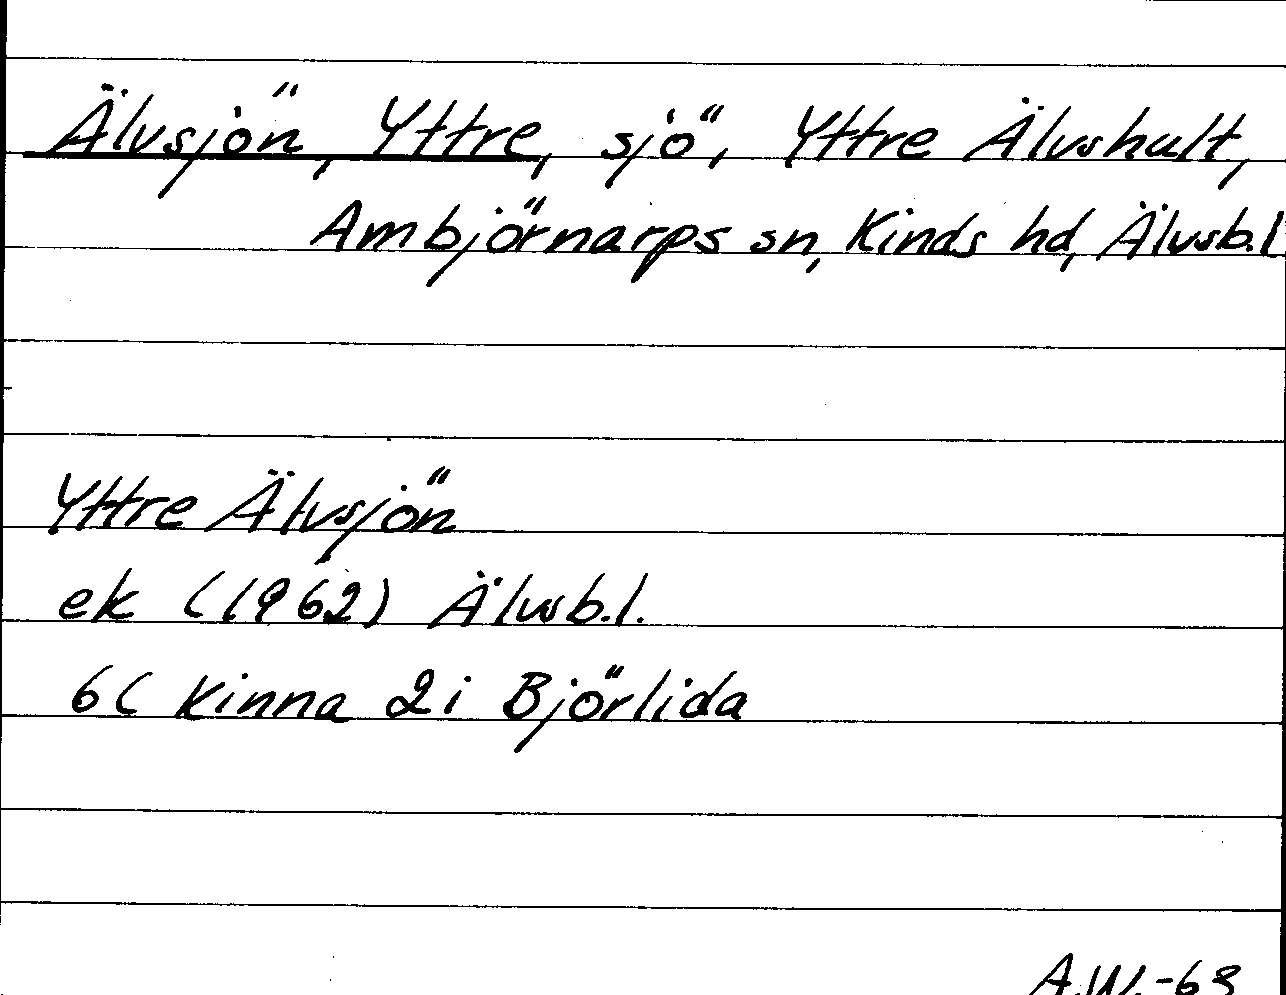 Älvsjön, Yttre, sjö, Yttre Älvshult,
Ambjörnarps sn, Kinds hd, Älvsb.l
Yttre Älvsjön
ek (1962) Älvsb.l.
6C Kinna 2i Björlida
A.W.-68